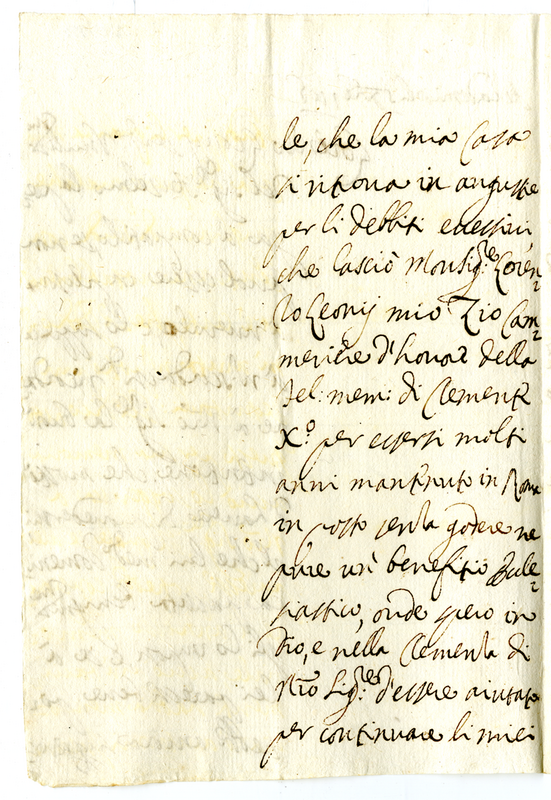 le, che la mia Casa
si ritrova in angustie
per li debbiti eccessivi
che lasciò Monsig.re Loren-
zo Leonij mio Zio Cam-
meriere d'honore della
fel: mem: di Clemente
X.o per essersi molti
anni mantenuto in Roma
in posto senza godere ne
pure un benefitio Eccle-
siastico, onde spero in
Dio, e nella Clemenza di
Nro Sig.re d'essere aiutato
per continuare li miei